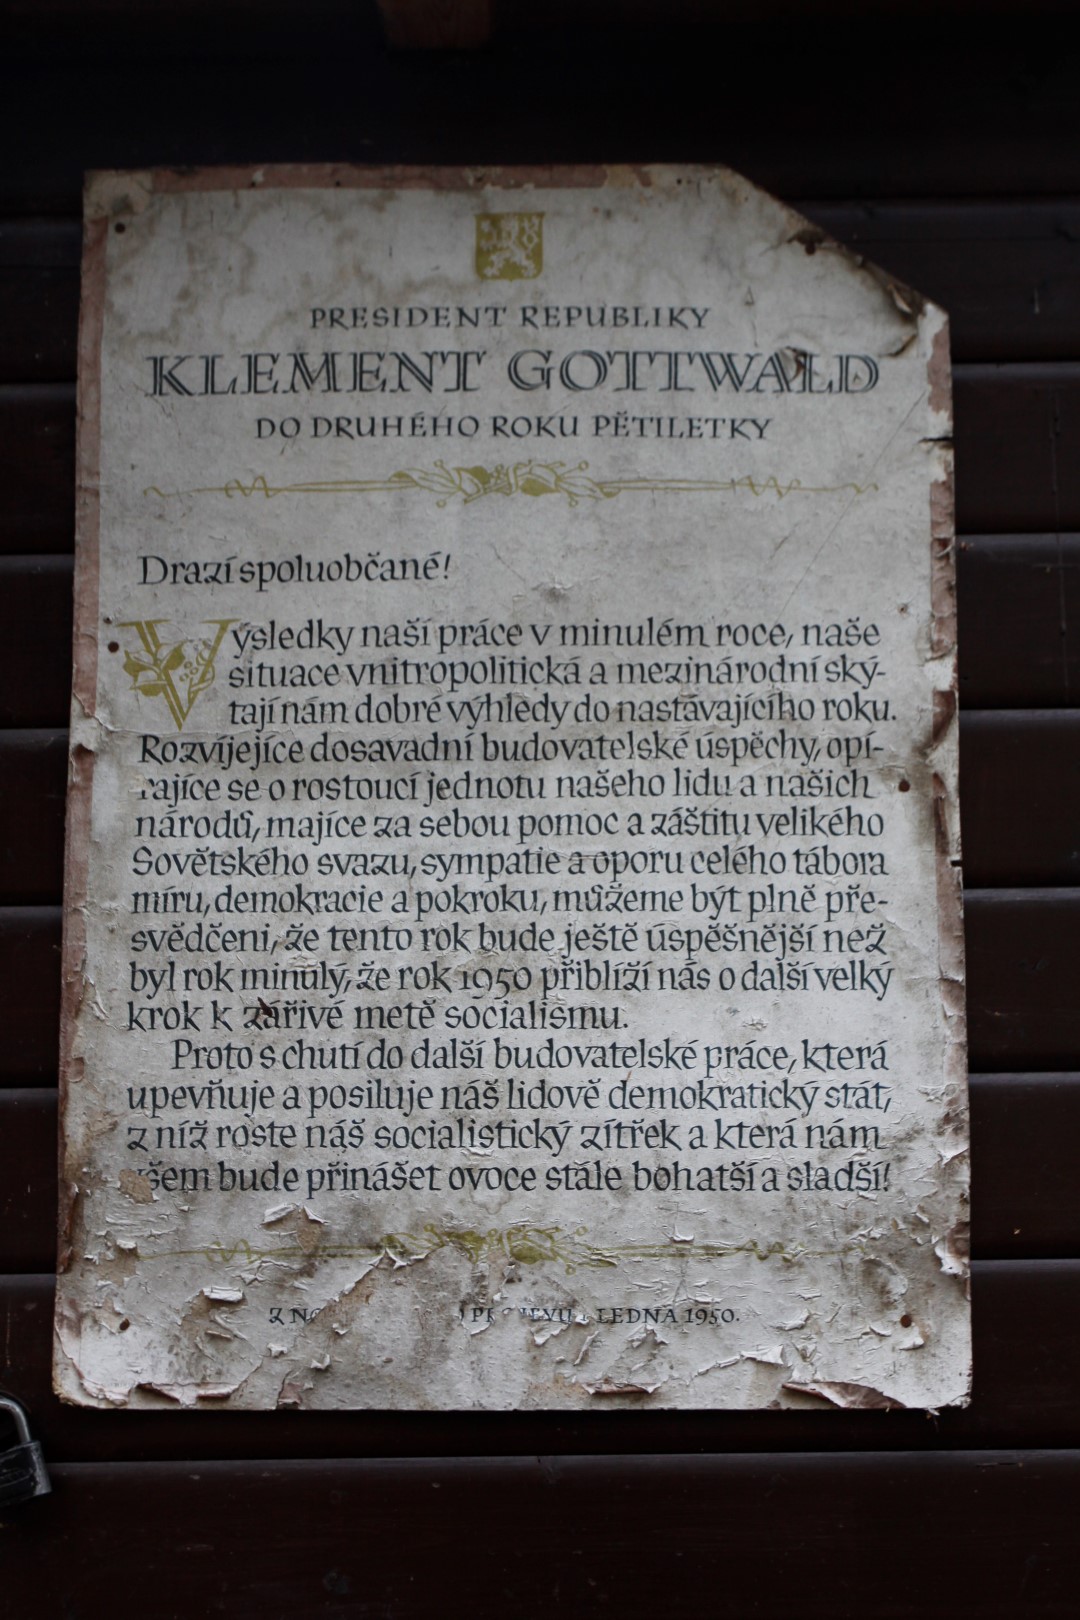 PRESIDENT REPUBLIKY
KLEMENT GOTTWALD
DO DRUHÉHO ROKU PĚTILETKY
Drazí spoluobčané!
Výsledky naší práce v minulém roce, naše
situace vnitropolitická a mezinárodní ský-
tají nám dobré vyhledy do nastávajícího roku.
Rozvíjejíce dosavadní budovatelské úspěchy, opí-
rajíce se o rostoucí jednotu našeho lidu a našich
národů, majíce za sebou pomoc a záštitu velikého
Sovětského svazu, sympatie a oporu celého tábora
míru, demokracie a pokroku, můžeme být plně pře-
svědčeni, že tento rok bude ještě úspěšnější než
byl rok minulý, že rok 1950 přiblíží nás o další velký
krok k zářivé metě socialismu.
Proto s chutí do další budovatelské práce, která
upevňuje a posiluje náš lidově demokratický stát,
z níž roste náš socialistický zítřek a která nám
všem bude přinášet ovoce stále bohatší a sladší!
Z LEDNA 1950.